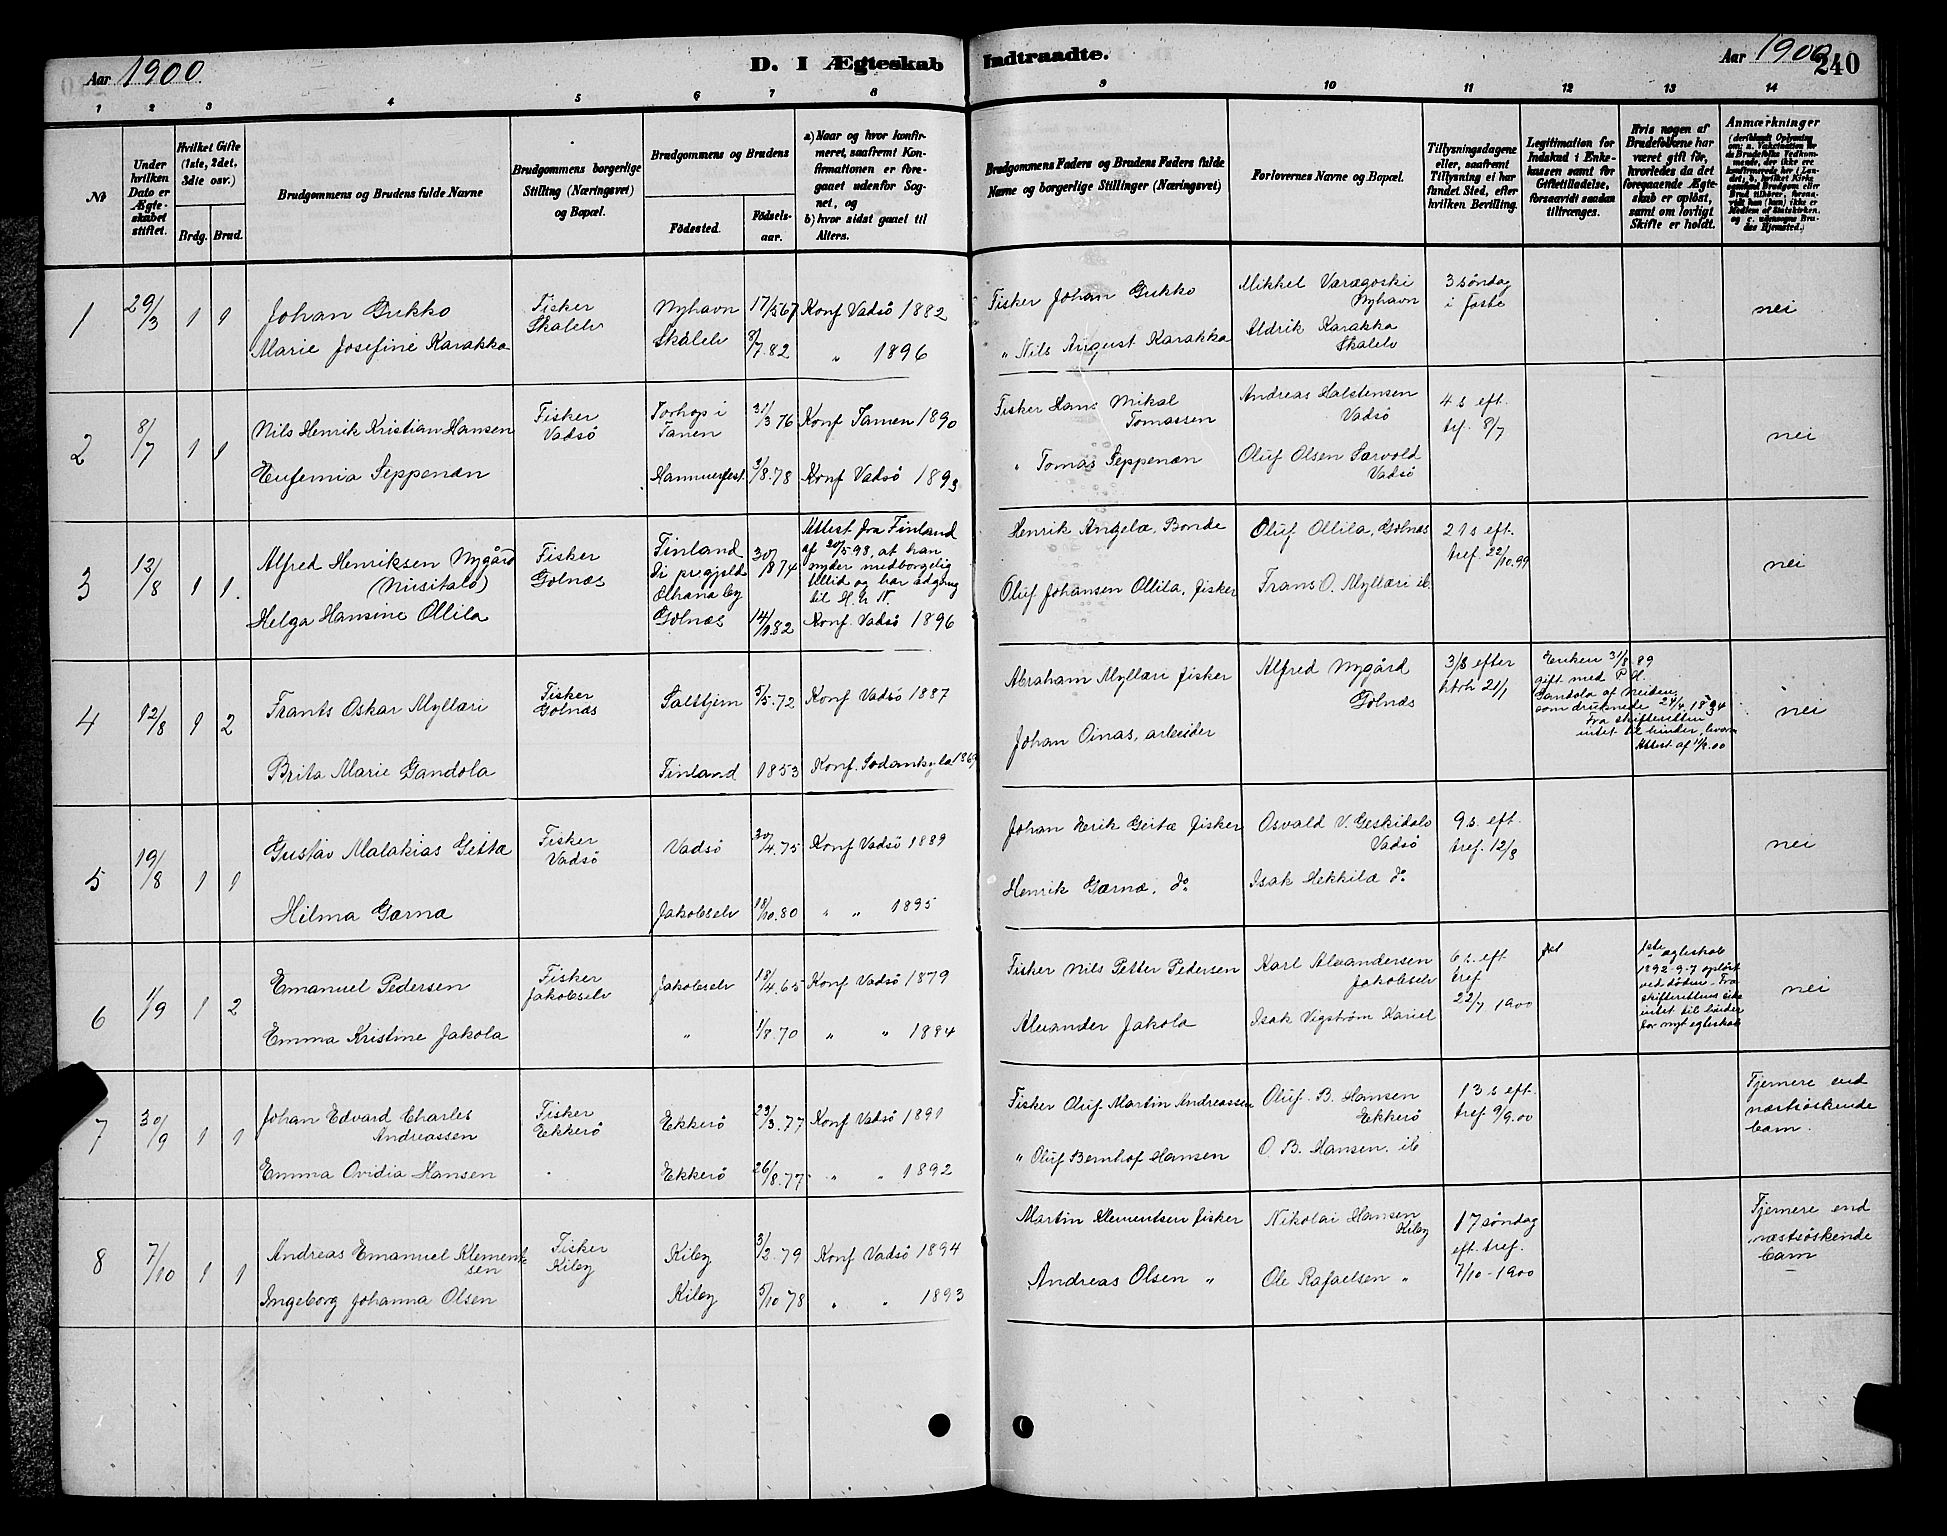 Aar 1900.
D. I Ægteskab Indtraadte.
Aar 1900
240
1 2 3 4 5 6 7 8 9 10 11 12 13 14
№
Under hvilken Dato er Ægteskabet stiftet.
Hvilket Gifte (1ste, 2det, 3die osv.)
Brdg. Brud.
Brudgommens og Brudens fulde Navne
Brudgommens borgerlige Stilling (Næringsvei) og Bopæl.
Brudgommens og Brudens
Fødested.
Fødsels-aar.
a) Naar og hvor konfirmeret, saafremt Konfirmationen er foregaaet udenfor Sognet, og
b) hvor sidst gaaet til Alters.
Brudgommens Faders og Brudens Faders fulde Navne og borgerlige Stillinger (Næringsvei)
Forlovernes Navne og Bopæl.
Tillysningsdagene eller, saafremt Tillysning ei har fundet Sted, efter hvilken Bevilling.
Legitimation for Indskud i Enkekassen samt for Giftetilladelse, forsaavidt saadan tiltrænges.
Hvis nogen af Brudefolkene har været gift før, hvorledes da det foregaaende Ægteskab er opløst, samt om lovligt Skifte er holdt.
Anmærkninger
1 29/3 1 1
Johan Gukko
Marie Josefine Karakka
Fisker
Skalelv
Nyhavn 17/5 67 Konf Vadsö 1882
Skalelv 8/7.82 " 1896
Fisker Johan Gukko
" Nils August Karakka
Mikkel Varagoski
Nyhavn
Aldrik Karakka
Skalelv
3 söndag
i faste
nei
2 8/7 1 1
Nils Henrik Kristian Hansen
Eufemia Seppenæn
Fisker
Vadsö
Torhop i
Tanen 31/3 76 Konf Tanen 1890
Hammerfest 3/8.78 Konf Vadsö 1893
Fisker Hans Mikal
Tomassen
" Tomas Seppenæn
Andreas Halstensen
Vadsö
Oluf Olsen Sarvold
Vadsö
4 s eft.
tref. 8/7
nei
3 12/8 1 1.
Alfred Henriksen Nygård
(Nusitalo)
Helga Hansine Ollila
Fisker
Golnæs
Finland
Golnæs
30/8 74
82
Attest fra Finland
af 20/5 98, at han
nyder medborgelig
tillid og har adgang
til H. h. N.
Konf. Vadsö 1896
Henrik Angela, Bonde
Oluf Johansen Ollila, fisker
Oluf Ollila, Golnæs
Frans O. Myllari ib.
21 s eft.
tref 22/10.99
nei
4 12/8 1 2
Frants Oskar Myllari
Brita Marie Gandola
Fisker
Golnæs
Saltbjern 5/5.72 Konf Vadsö 1887
Finland 1853 Konf. Sodankyla
Abraham Myllari fisker
Johan Oinas, arbeider
Alfred Nygård
Golnæs
3/s efter
21/1
Enken 31/8 89
gift med P. A.
Gandola af Neiden,
som druknede 24/4 1894
Fra skifteretten
intet til hinder,
Attest af
nei
5 19/8 1 1
Gustav Malakias Geitæ
Hilma Gærnæ
Fisker
Vadsö
Vadsö 30/4.75 Konf Vadsö 1889
Jakobselv 18/10.80 " " 1895
Johan Erik Geitæ fisker
Henrik Gærnæ, do
Osvald V. Geskidalo
Vadsö
Isak Hekkilæ do
9 s. eft.
tref. 12/8
nei
6 1/9 1 2
Emanuel Pedersen
Emma Kristine Jakola
Fisker
Jakobselv
Jakobselv 18/4.65 Konf Vadsö 1879
" 1/8.70 " " 1884
Fisker Nils Petter Pedersen
Alexander Jakola
Karl Alexandersen
Jakobselv
Isak Vigström Kariel
6 s. eft
tref
22/7 1900
1ste ægteskab
1892-9-7 opløst
ved döden. Fra
skifterettens side
intet til hinder
for nyt egteskab
nei
7 30/9 1 1
Johan Edvard Charles
Andreassen
Emma Ovidia Hansen
Fisker
Ekkerö
Ekkerö 23/3.77 Konf Vadsö 1891
Ekkerö 26/8.77 " " 1892
Fisker Oluf Martin Andreassen
" Oluf Bernhof Hansen
Oluf B. Hansen
Ekkerö
O. B. Hansen. ib
13 s eft.
tref 9/9.00
Fjernere end
næstsöskende
barn.
8 7/10 1 1
Andreas Emanuel Klement-
sen
Ingeborg Johanna Olsen
Fisker
Kiby
Kiby 3/2.79 Konf Vadsö 1894
Kiby 5/10 78 " " 1893
Martin Klementsen fisker
Andreas Olsen "
Nikolai Hansen
Kiby
Ole Rafaelsen "
17 söndag
eft. tref.
7/10-1900
Fjernere end
næstsöskende
barn